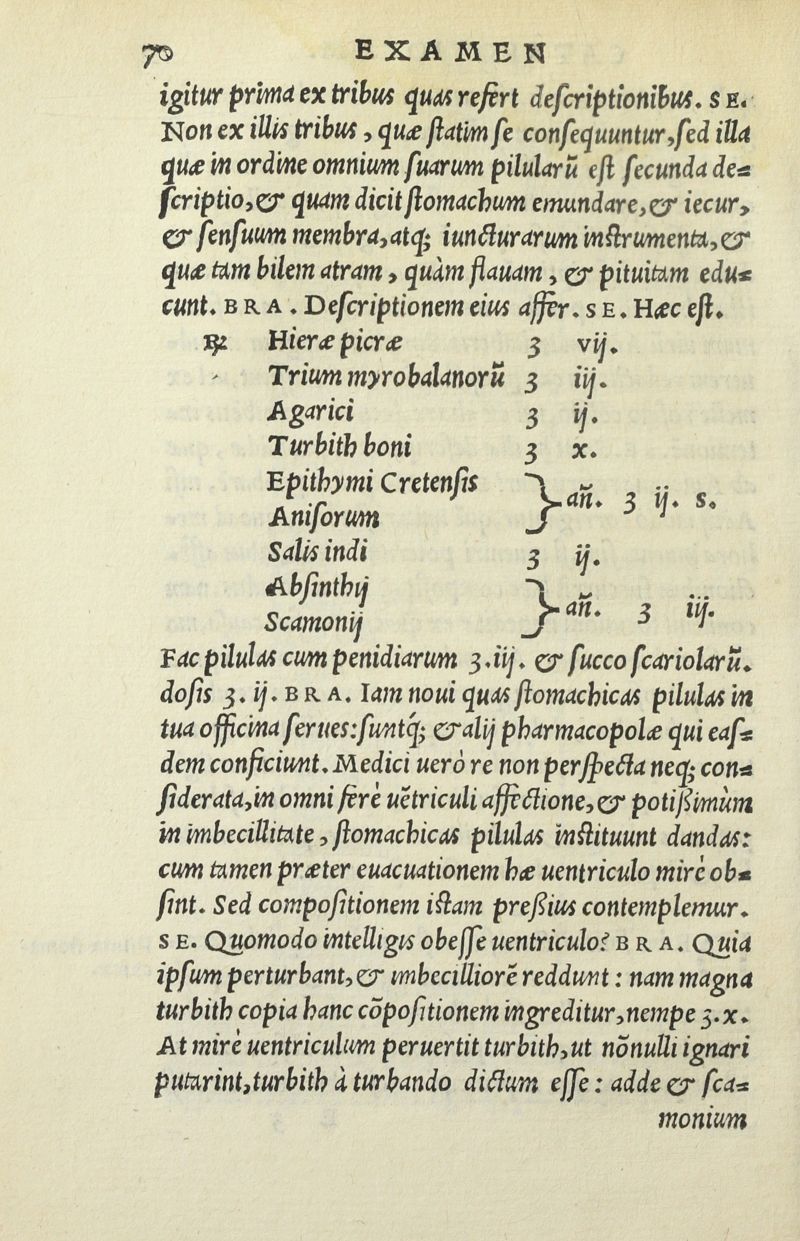 70 EXAMEN
igitur prima ex tribus quas refert deſcriptionibus. SE.
Non ex illis tribus, quæ ſtatim ſe conſequuntur, ſed illa
quæ in ordine omnium ſuarum pilularũ eſt ſecunda de=
ſcriptio, & quam dicit ſtomachum emundare, & iecur,
& ſenſuum membra, atq; iuncturarum inſtrumenta, &
quæ tam bilem atram, quàm flauam, & pituitam edu=
cunt. BRA. Deſcriptionem eius affer. SE. Hæc eſt.
℞ Hieræ picræ ʒ vij.
Trium myrobalanorũ ʒ iij.
Agarici ʒ ij.
Turbith boni ʒ x.
Epithymi Cretenſis
Aniſorum } añ. ʒ ij. s.
Salis indi ʒ ij.
Abſinthij
Scamonij } añ. ʒ iij.
Fac pilulas cum penidiarum ʒ. iij. & ſucco ſcariolarũ.
doſis ʒ. ij. BRA. Iam noui quas ſtomachicas pilulas in
tua officina ſerues: ſuntq́; & alij pharmacopolæ qui eaſ=
dem conficiunt. Medici uerò re non perſpecta neq; con=
ſiderata, in omni ferè uẽtriculi affectione, & potißimùm
in imbecillitate, ſtomachicas pilulas inſtituunt dandas:
cum tamen præter euacuationem hæ uentriculo mirè ob=
ſint. Sed compoſitionem iſtam preßius contemplemur.
SE. Quomodo intelligis obeſſe uentriculo? BRA. Quia
ipſum perturbant, & imbecilliorẽ reddunt: nam magna
turbith copia hanc cõpoſitionem ingreditur, nempe ʒ. x.
At mirè uentriculum peruertit turbith, ut nõnulli ignari
putarint, turbith à turbando dictum eſſe: adde & ſca=
monium